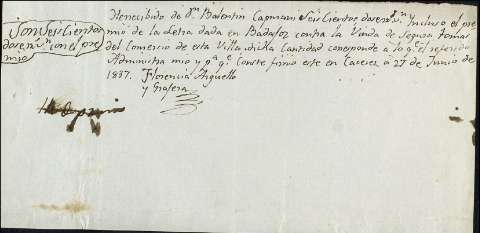 He recibido de Dn. Balentin Capurani Seis Cientos doze rs. vn. Incluso el pre
mio de la Letra dada en Badajoz contra la Viuda de Segura tomas
del Comercio de esta Villa dicha Cantidad coresponde a lo qe. el referido
Administra mio y pa. qe. Conste firmo este en Caceres a 27 de Junio de
1837. Florencia Arguello
y Grajera
Son Seis Cientos
doze rs. vn. con el pre
mio